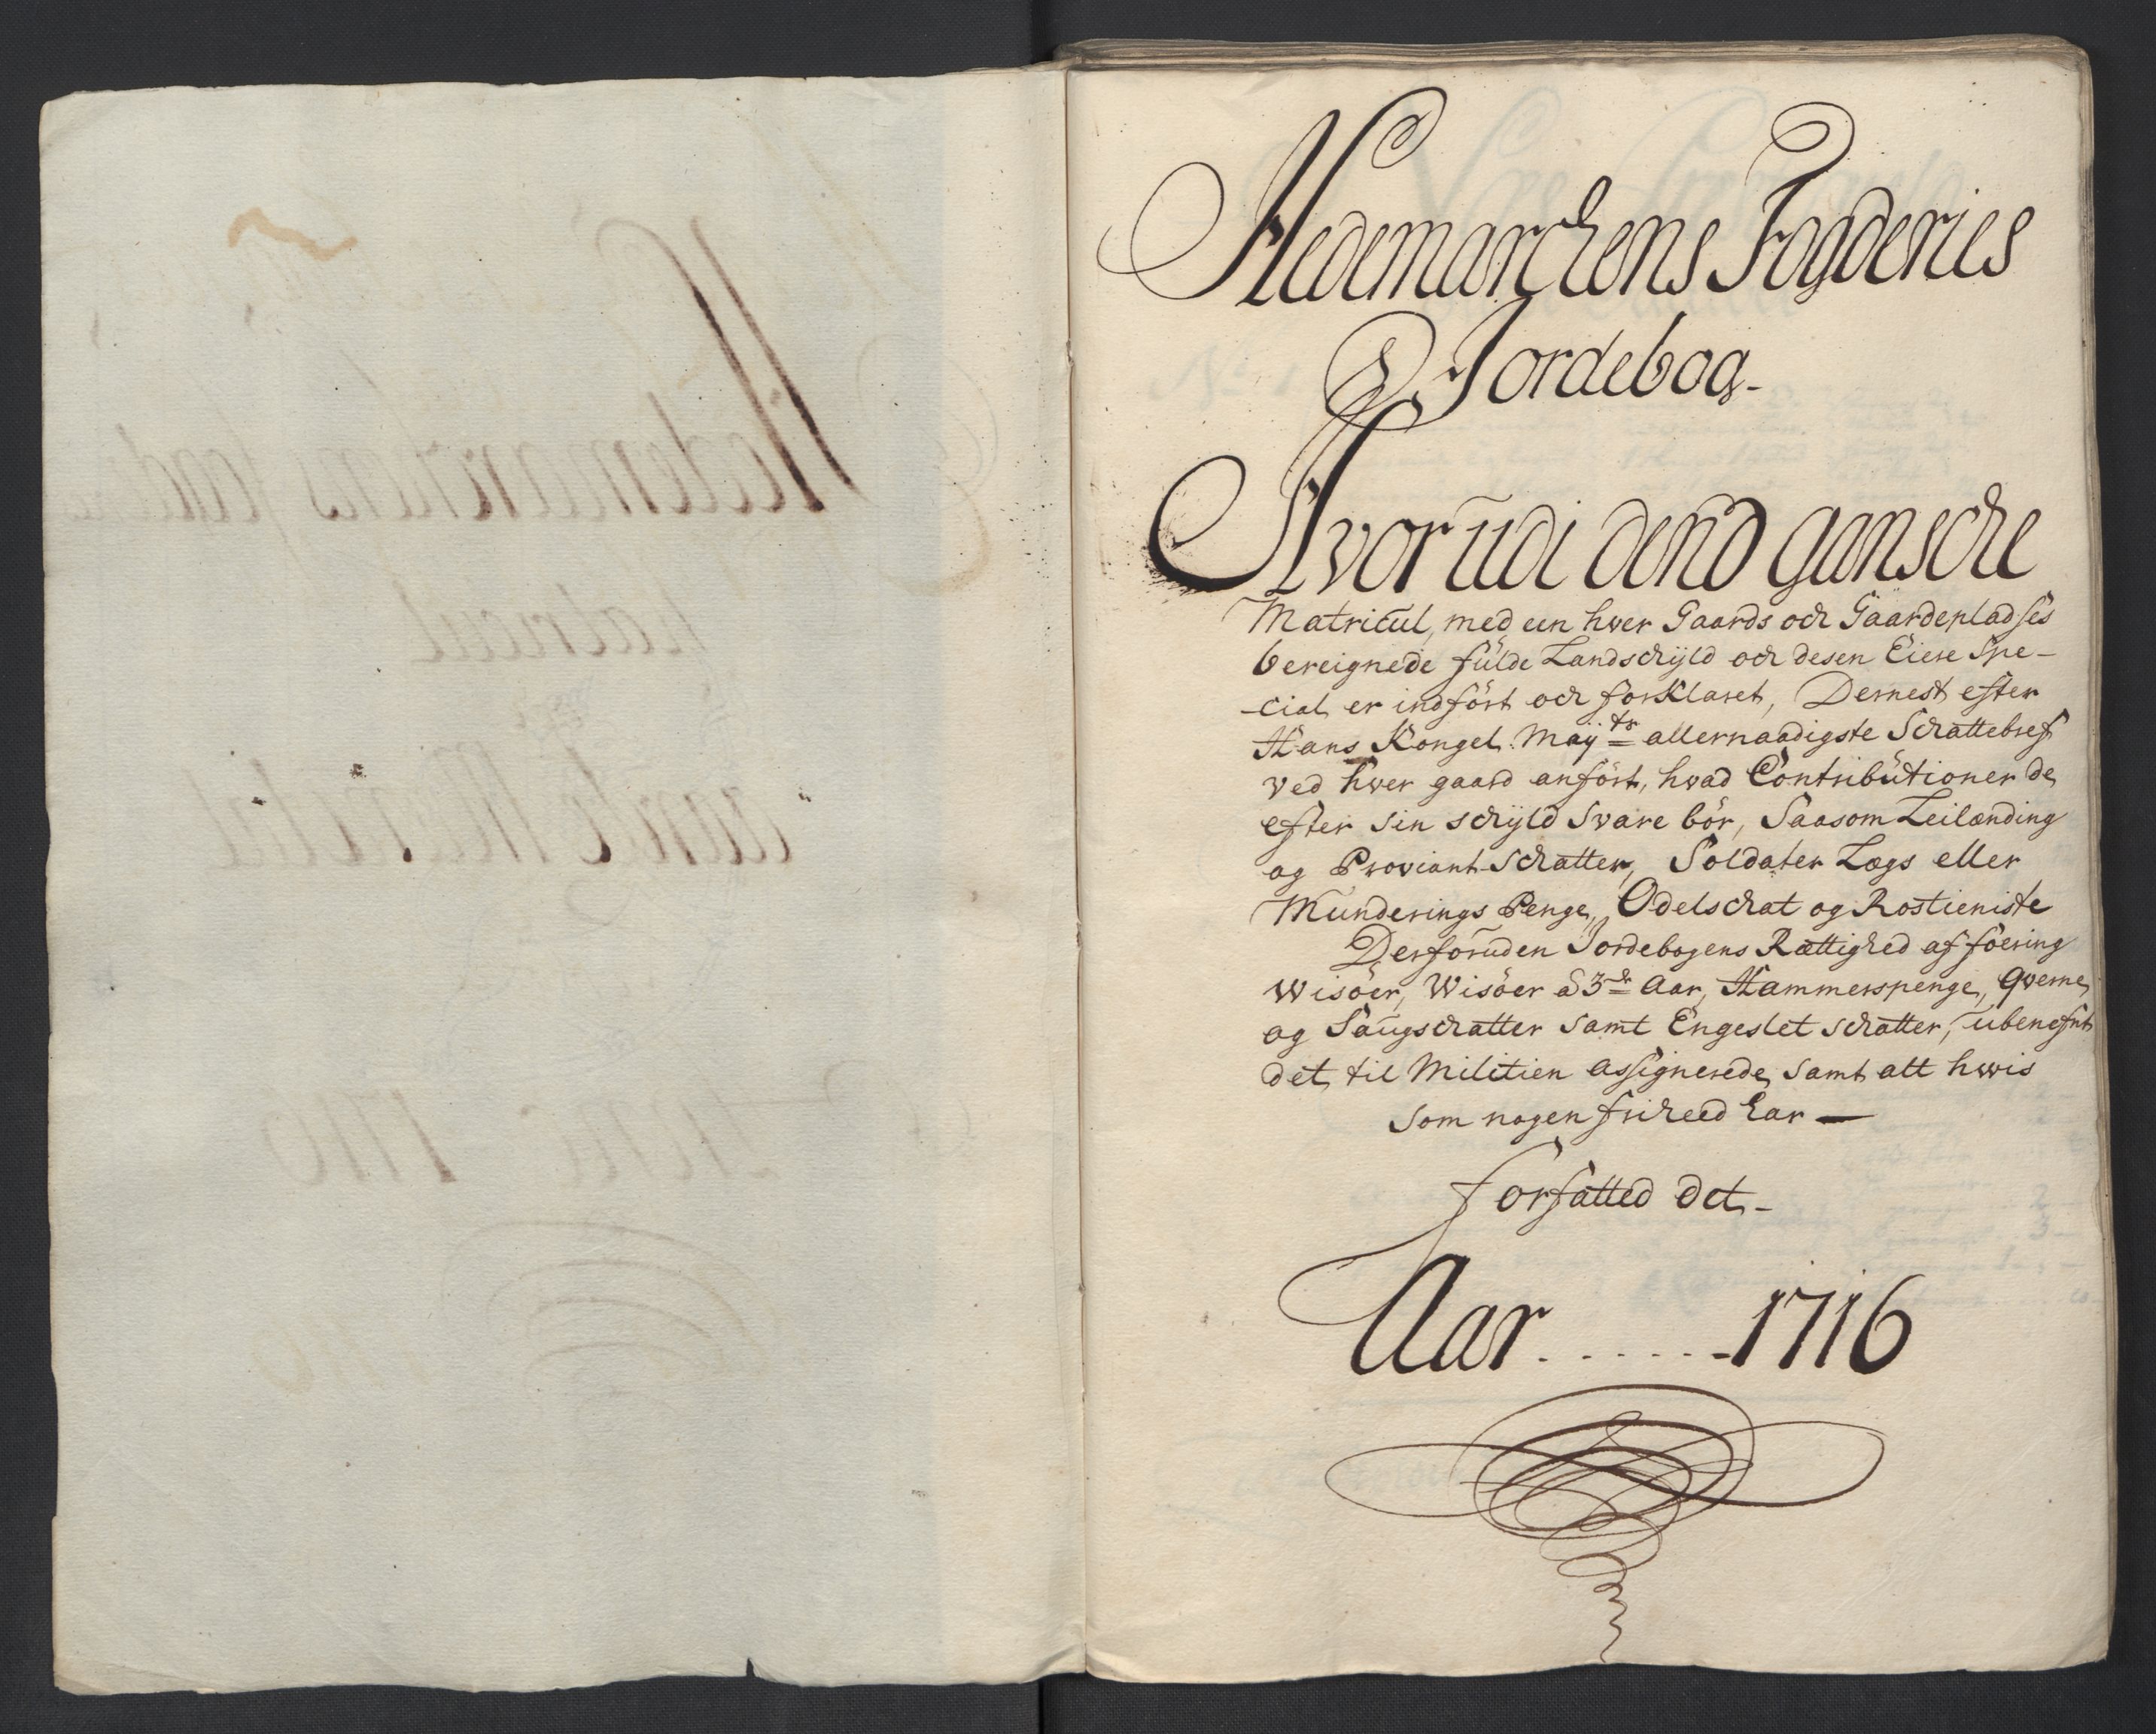 Hedemarchens Fogderies
Jordebog-
Hvorudi dend gansche
Matricul, med een hver Gaards och Gaardepladses
bereignede fulde Landschyld och desen Eiere Spe-
-cial er indført och forklaret, Dernest efter
Hans Kongel: Maÿ:ts allernaadigste Schattebref
ved hver gaard anført, hvad Contributioner de
efter sin schyld svare bør, Saasom Leilænding
og Proviant-Schatter, Soldater Lægs eller
Munderings Penge, Odelschat og Rostieniste
Desforuden Jordebogens Rættighed af foering
Wisøer, Wisøer à 3die Aar, Hammerspenge, Qverne
og Saugschatter samt Engeslet schatter, ubenefnt
det til Militien assignerede, samt alt hvis
som nogen friheed har —
forfatted det-
Aar......1716